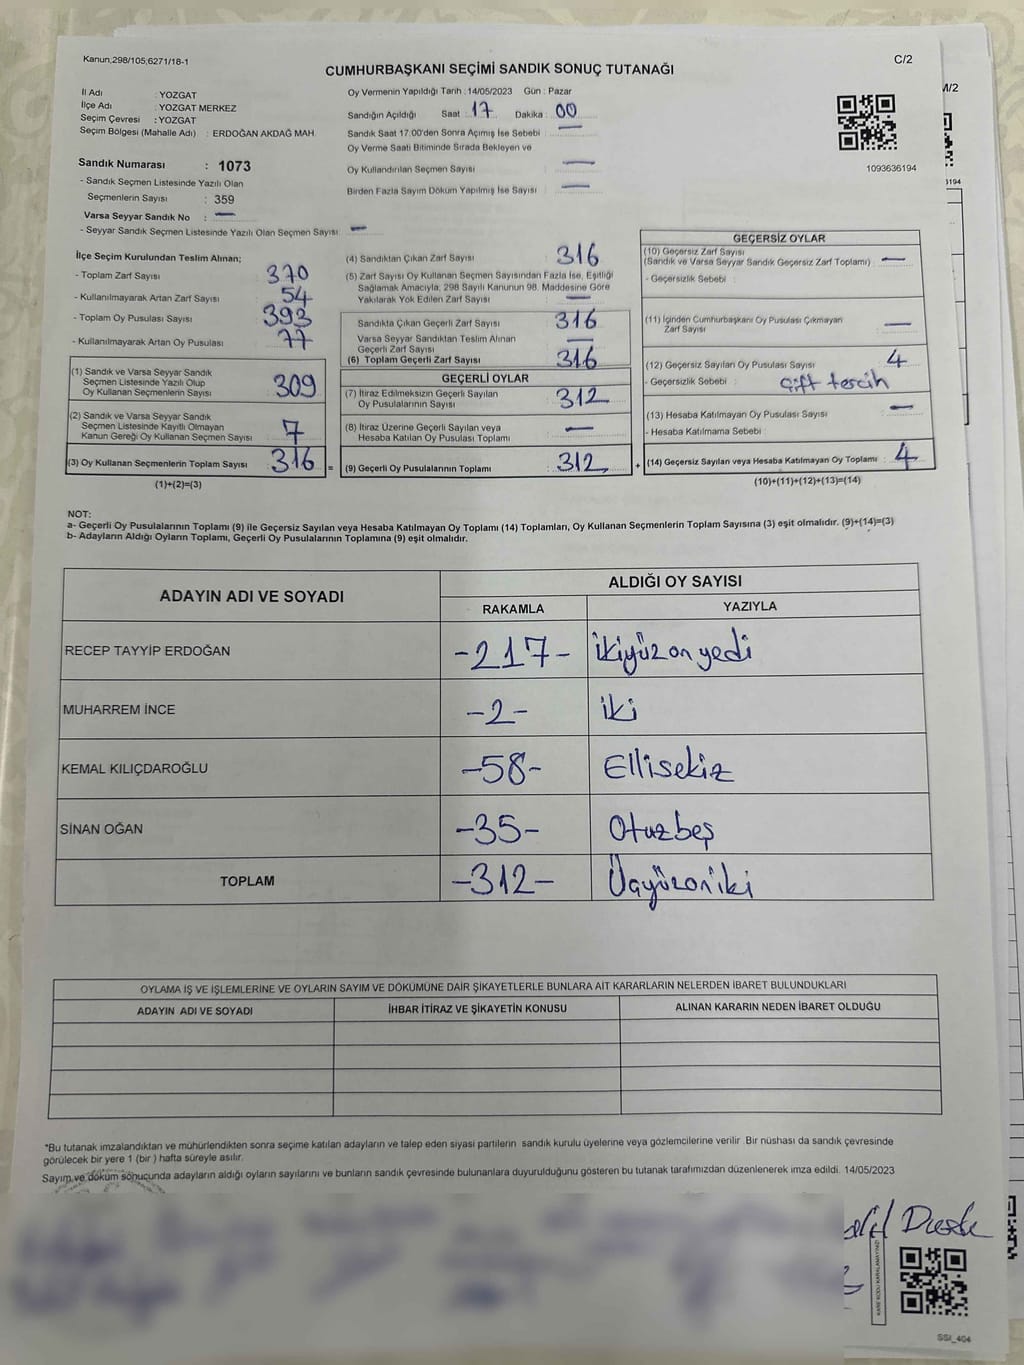 Kanun;298/105;6271/18-1
C/2
CUMHURBAŞKANI SEÇİMİ SANDIK SONUÇ TUTANAĞI
M/2
İl Adı : YOZGAT
İlçe Adı : YOZGAT MERKEZ
Seçim Çevresi : YOZGAT
Seçim Bölgesi (Mahalle Adı) : ERDOĞAN AKDAĞ MAH.
Sandık Numarası : 1073
- Sandık Seçmen Listesinde Yazılı Olan
Seçmenlerin Sayısı : 359
Varsa Seyyar Sandık No : —
- Seyyar Sandık Seçmen Listesinde Yazılı Olan Seçmen Sayısı: —
Oy Vermenin Yapıldığı Tarih : 14/05/2023 Gün : Pazar
Sandığın Açıldığı Saat : 17 Dakika : 00
Sandık Saat 17.00'den Sonra Açımış İse Sebebi : —
Oy Verme Saati Bitiminde Sırada Bekleyen ve
Oy Kullandırılan Seçmen Sayısı : —
Birden Fazla Sayım Döküm Yapılmış İse Sayısı : —
1093636194
3194
İlçe Seçim Kurulundan Teslim Alınan;
- Toplam Zarf Sayısı : 370
- Kullanılmayarak Artan Zarf Sayısı : 54
- Toplam Oy Pusulası Sayısı : 393
- Kullanılmayarak Artan Oy Pusulası : 77
(1) Sandık ve Varsa Seyyar Sandık
Seçmen Listesinde Yazılı Olup
Oy Kullanan Seçmenlerin Sayısı : 309
(2) Sandık ve Varsa Seyyar Sandık
Seçmen Listesinde Kayıtlı Olmayan
Kanun Gereği Oy Kullanan Seçmen Sayısı : 7
(3) Oy Kullanan Seçmenlerin Toplam Sayısı : 316 =
(1)+(2)=(3)
(4) Sandıktan Çıkan Zarf Sayısı : 316
(5) Zarf Sayısı Oy Kullanan Seçmen Sayısından Fazla İse, Eşitliği
Sağlamak Amacıyla, 298 Sayılı Kanunun 98. Maddesine Göre
Yakılarak Yok Edilen Zarf Sayısı : —
Sandıkta Çıkan Geçerli Zarf Sayısı : 316
Varsa Seyyar Sandıktan Teslim Alınan
Geçerli Zarf Sayısı : —
(6) Toplam Geçerli Zarf Sayısı : 316
GEÇERLİ OYLAR
(7) İtiraz Edilmeksizin Geçerli Sayılan
Oy Pusulalarının Sayısı : 312
(8) İtiraz Üzerine Geçerli Sayılan veya
Hesaba Katılan Oy Pusulası Toplamı : —
(9) Geçerli Oy Pusulalarının Toplamı : 312 +
GEÇERSİZ OYLAR
(10) Geçersiz Zarf Sayısı
(Sandık ve Varsa Seyyar Sandık Geçersiz Zarf Toplamı) : —
- Geçersizlik Sebebi :
(11) İçinden Cumhurbaşkanı Oy Pusulası Çıkmayan
Zarf Sayısı : —
(12) Geçersiz Sayılan Oy Pusulası Sayısı : 4
- Geçersizlik Sebebi : Çift tercih
(13) Hesaba Katılmayan Oy Pusulası Sayısı : —
- Hesaba Katılmama Sebebi :
(14) Geçersiz Sayılan veya Hesaba Katılmayan Oy Toplamı : 4
(10)+(11)+(12)+(13)=(14)
NOT:
a- Geçerli Oy Pusulalarının Toplamı (9) ile Geçersiz Sayılan veya Hesaba Katılmayan Oy Toplamı (14) Toplamları, Oy Kullanan Seçmenlerin Toplam Sayısına (3) eşit olmalıdır. (9)+(14)=(3)
b- Adayların Aldığı Oyların Toplamı, Geçerli Oy Pusulalarının Toplamına (9) eşit olmalıdır.
ADAYIN ADI VE SOYADI
ALDIĞI OY SAYISI
RAKAMLA YAZIYLA
RECEP TAYYİP ERDOĞAN -217- ikiyüzonyedi
MUHARREM İNCE -2- iki
KEMAL KILIÇDAROĞLU -58- Ellisekiz
SİNAN OĞAN -35- Otuzbeş
TOPLAM -312- Üçyüzoniki
OYLAMA İŞ VE İŞLEMLERİNE VE OYLARIN SAYIM VE DÖKÜMÜNE DAİR ŞİKAYETLERLE BUNLARA AİT KARARLARIN NELERDEN İBARET BULUNDUKLARI
ADAYIN ADI VE SOYADI İHBAR İTİRAZ VE ŞİKAYETİN KONUSU ALINAN KARARIN NEDEN İBARET OLDUĞU
*Bu tutanak imzalandıktan ve mühürlendikten sonra seçime katılan adayların ve talep eden siyasi partilerin sandık kurulu üyelerine veya gözlemcilerine verilir. Bir nüshası da sandık çevresinde
görülecek bir yere 1 (bir) hafta süreyle asılır.
Sayım ve döküm sonucunda adayların aldığı oyların sayılarını ve bunların sandık çevresinde bulunanlara duyurulduğunu gösteren bu tutanak tarafımızdan düzenlenerek imza edildi. 14/05/2023
KARE KODU KARALAMAYINIZ
SSI_404